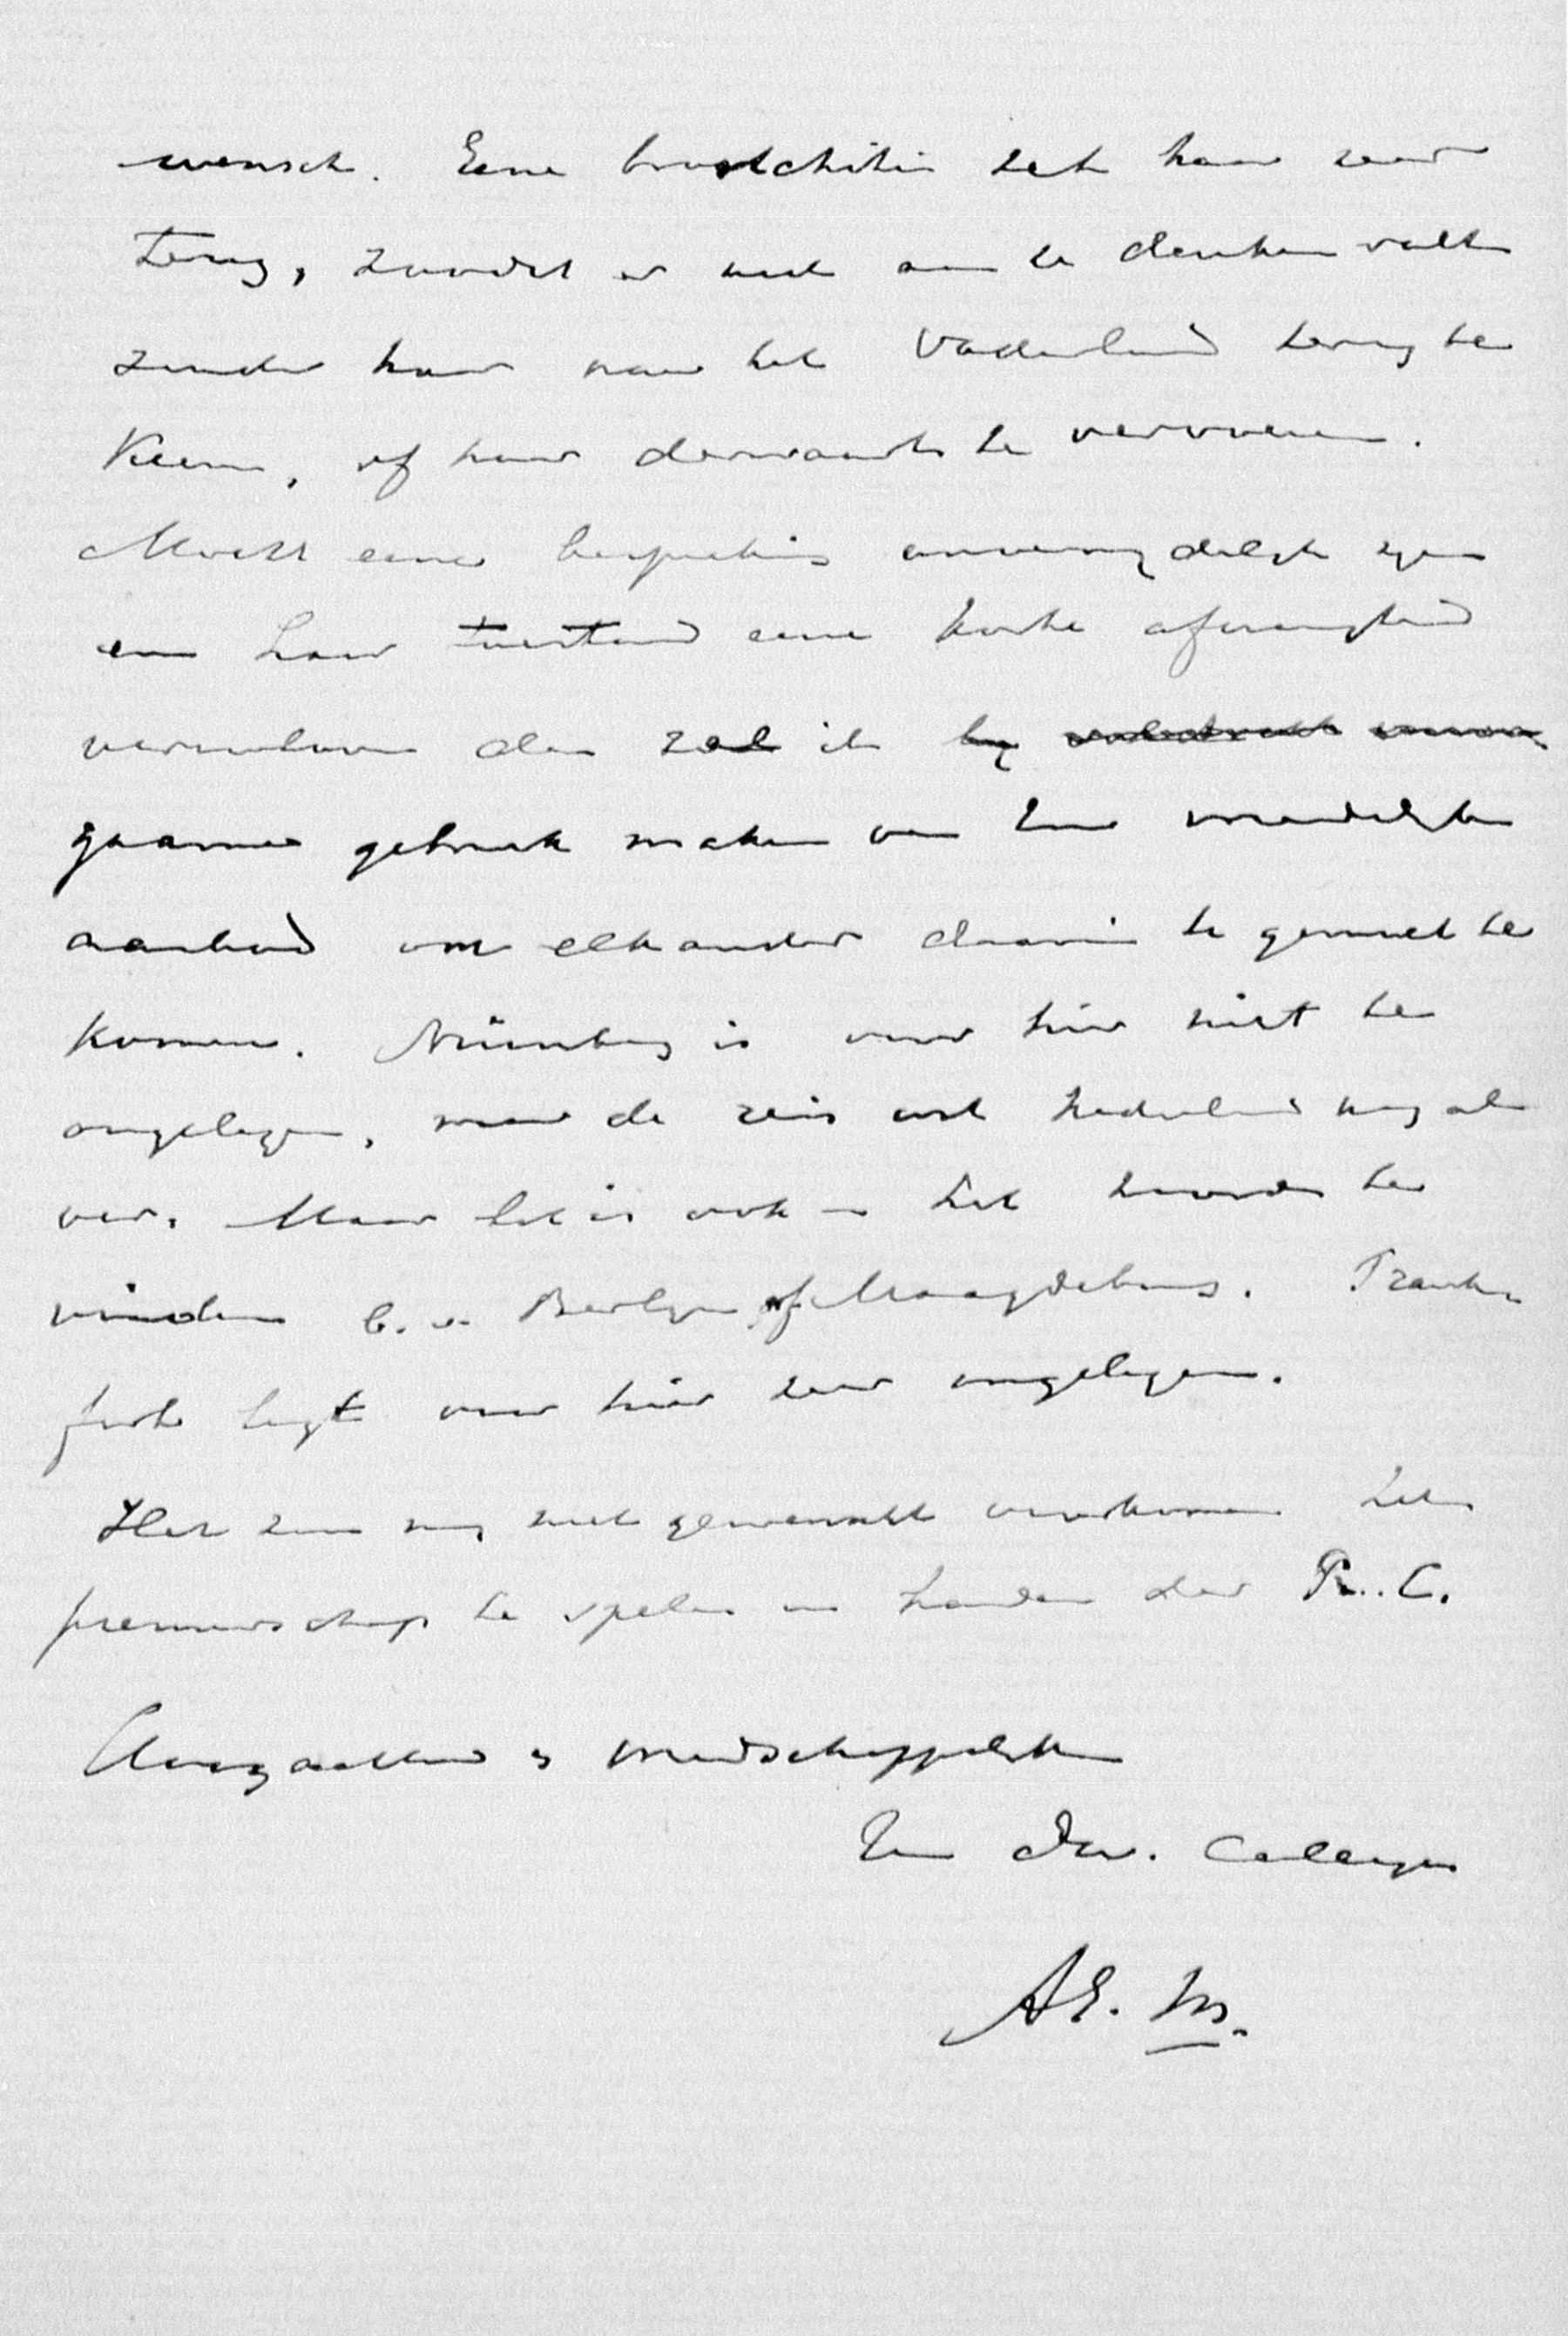 wensch. Eene bronchitis zet haar zeer
terug, zoodat er niet aan te denken valt
zonder haar naar het Vaderland terug te
Keeren, of haar derwaarts te vervoeren.
Mocht eene bespreking onvermydelyk zyn
en haar toestand eene korte afwezigheid
veroorloven dan zal ik by
gaarne gebruik maken van Uw vriendelyk
aanbod om elkander daarin te gemoet te
komen. Nürnberg is voor hier niet te
ongelegen, maar de reis uit Nederland nog al
ver. Maar het is ook in het Noorden te
vinden b.v. Berlyn of Maagdeburg. Frank-
furt ligt voor hier zeer ongelegen.
Het zou my niet gewenscht voorkomen het
premierschap te spelen in handen der R.. C.
Hoogachtend en vriendschappelyk
Uw dw. Collega
AE. M.